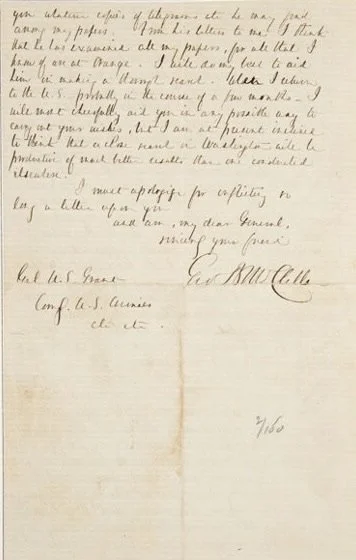 you whatever copies of telegrams etc he may find
among my papers. From his letters to me I think
that he has examined all my papers, for all that I
know of are at Orange. I will do my best to aid
him in making a thorough search. When I return
to the U.S. probably in the course of a few months - I
will most cheerfully aid you in any possible way to
carry out your wishes, but I am at present inclined
to think that a close search in Washington will be
productive of much better results than one conducted
elsewhere.
I must apologize for inflicting so
long a letter upon you
and am, my dear General,
sincerely your friend
Geo B McClellan
Genl U.S. Grant
Comg U.S. Armies
etc etc.
2/160